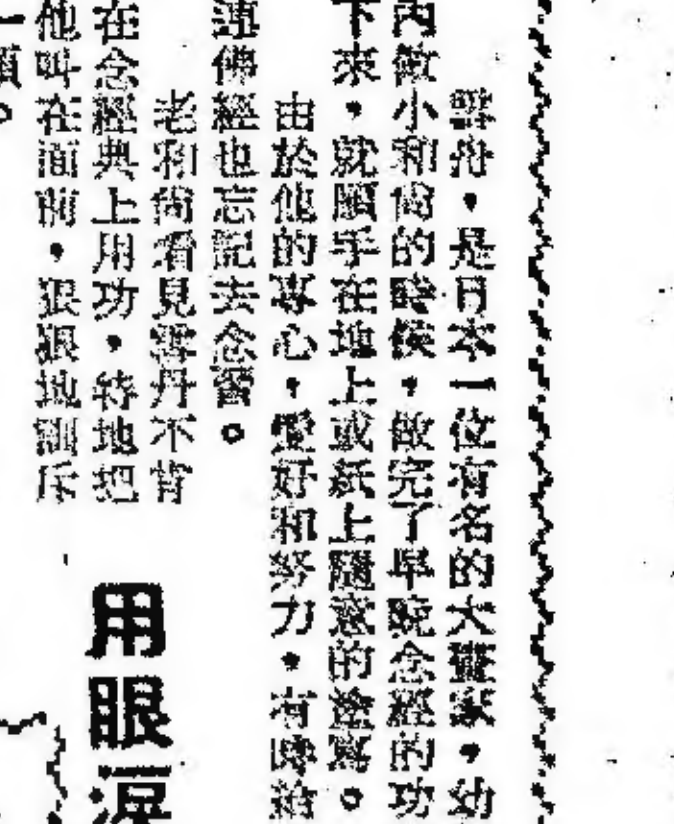 雲舟，是日本一位有名的大畫家，幼
內做小和尚的時候，做完了早晚念經的功
下來，就順手在地上或紙上隨意的塗寫。
由於他的專心，愛好和努力，有時
連佛經也忘記去念習。
老和尚看見雲丹不肯
在念經典上用功，特地把
他叫在面前，狠狠地訓斥
一頓。
用眼淚